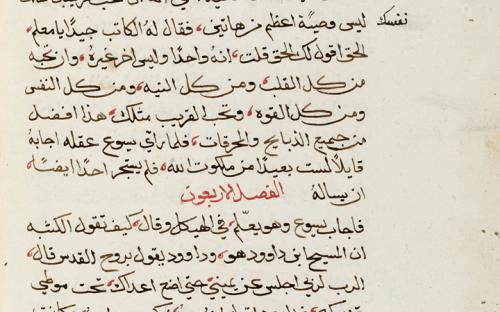 نفسك
ليس وصية اعظم من هاتين، فقال له الكاتب جيدًا يا معلم
الحق اقول لك الحق قلت، انه واحدًا وليس اخر غيره، وان تحبه
من كل القلب، ومن كل النيه، ومن كل النفس
ومن كل القوه، وتحب القريب مثلك، هذا افضل
من جميع الذبايح والمحرقات، فلما راي يسوع عقله اجابه
قايلاً لست بعيدًا من ملكوت الله، فلم يتجر احدًا ايضًا
ان يساله
الفصل الاربعون
فاجاب يسوع وهو يعلّم في الهيكل وقال، كيف تقول الكتبه
ان المسيح ابن داوود هو، وداوود يقول بروح القدس قال،
الرب لربي اجلس عن يميني حتي اضع اعداك، تحت موطي